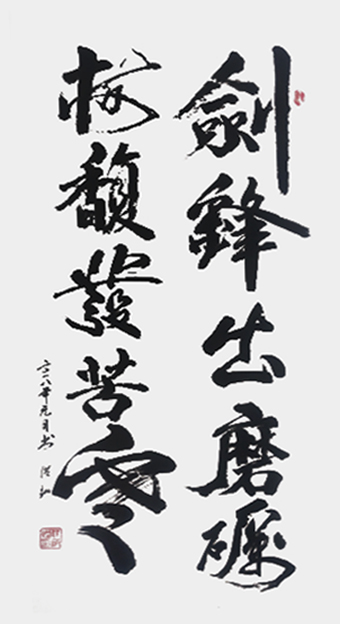 劍鋒出磨礪
梅馥發苦寒
二〇一八年元月书